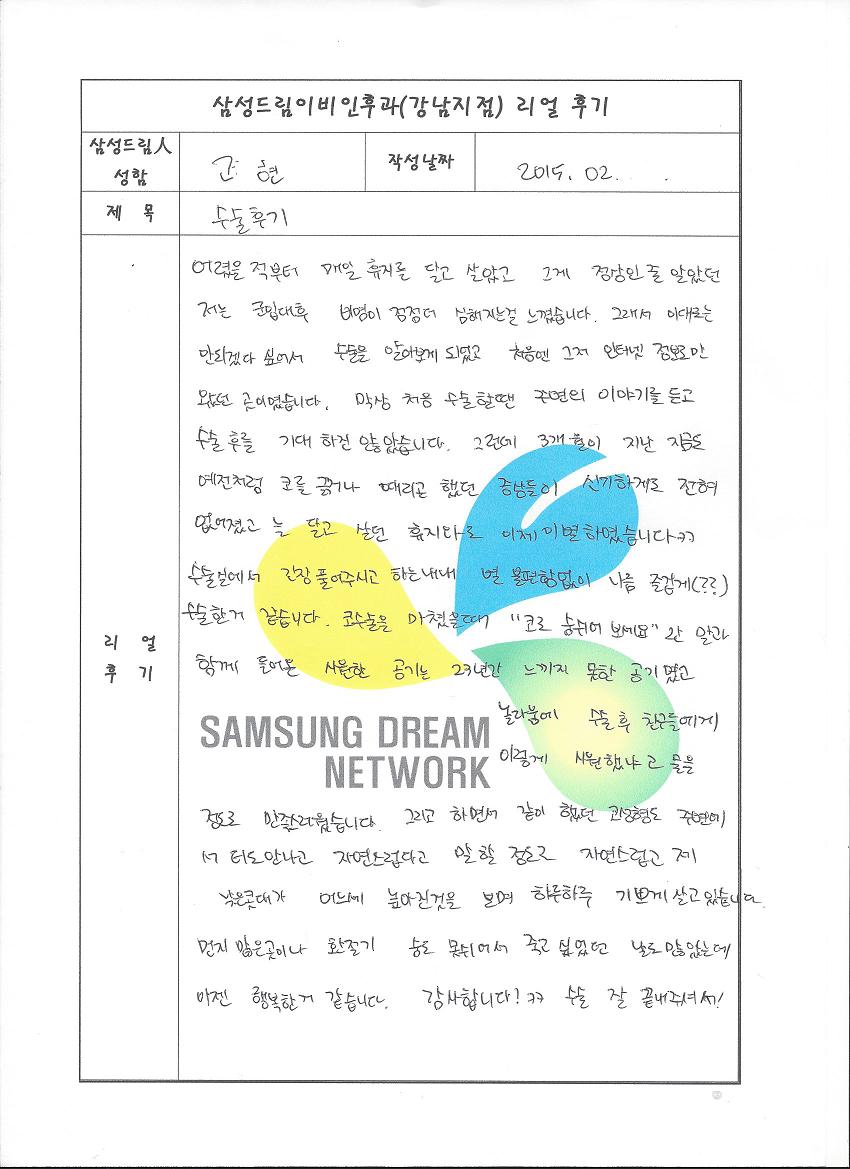 삼성드림이비인후과(강남지점) 리얼 후기
삼성드림人
성함
현
작성날짜
2015. 02.
제 목
수술후기
어렸을 적부터 매일 휴지를 달고 살았고 그게 정상인 줄 알았던
저는 군입대후 비염이 점점더 심해지는걸 느꼈습니다. 그래서 이대로는
안되겠다 싶어서 수술을 알아보게 되었고 처음엔 그저 인터넷 정보로만
왔던 곳이였습니다. 막상 처음 수술할땐 주변의 이야기를 듣고
수술 후를 기대 하진 않았습니다. 그런데 3개월이 지난 지금도
예전처럼 코를 긁거나 때리고 했던 증상들이 신기하게도 전혀
없어졌고 늘 달고 살던 휴지와도 이제 이별하였습니다ㅋㅋ
수술실에서 긴장 풀어주시고 하는내내 별 불편함없이 나름 즐겁게(??)
수술한거 같습니다. 코수술을 마쳤을때 "코로 숨쉬어 보세요" 란 말과
함께 들어온 시원한 공기는 23년간 느끼지 못한 공기였고
놀라움에 수술 후 친구들에게
이렇게 시원했냐고 물을
SAMSUNG DREAM
NETWORK
정도로 만족스러웠습니다. 그리고 하면서 같이 했던 코성형도 주변에
서 티도안나고 자연스럽다고 말할 정도로 자연스럽고 제
낮은콧대가 어느새 높아진것을 보며 하루하루 기쁘게 살고있습니다.
먼지 많은곳이나 환절기 숨도 못쉬어서 죽고 싶었던 날도 많았는데
이젠 행복한거 같습니다. 감사합니다! ㅋㅋ 수술 잘 끝내주셔서!
리 얼
후 기